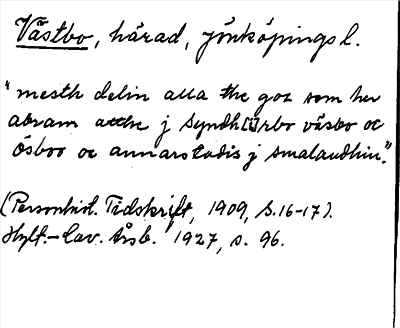 Västbo, härad, Jönköpings l.
"mesth delin alla the goz som her
abram atthe j Syndh[u]rbo väsbo oc
Ösboo oc annarstadis j smalandhin."
(Personhist. Tidskrift, 1909, S. 16-17).
Hylt.-Cav. Årsb. 1927, s. 96.